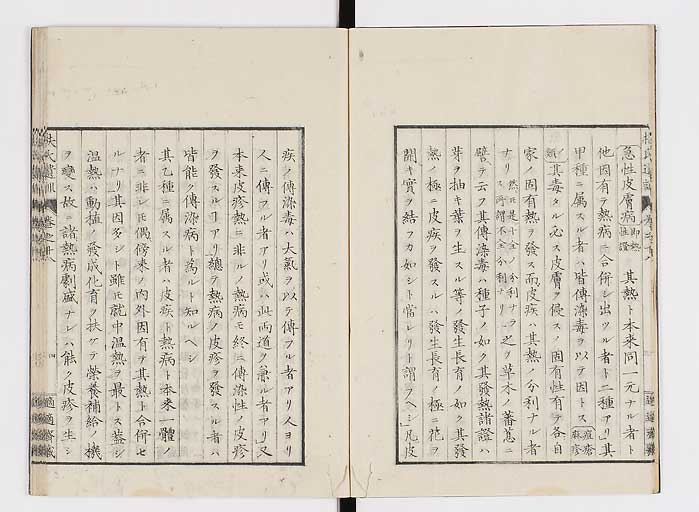 急性皮膚病 即熱性證 其熱ト本来同一元ナル者ト
他固有ナ熱病ニ合併シ出ツル者トニ種アリ」其
甲種ニ属スル者ハ皆傳染毒ヲ以テ因トス 痘瘡麻疹
類 其毒タル必ス皮膚ヲ侵スノ固有性有テ各自
家ノ固有熱ヲ發シ而皮疾ハ其熱ノ分利ナル者
ナリ 然𪜈是十全ノ分利ナラス所謂不全分利ナリ 之ヲ草木ノ蕃茲ニ
譬テ云フ其傳染毒ハ種子ノ如ク其發熱諸證ハ
芽ヲ抽キ葉ヲ生スル等ノ發生長育ノ如ク其發
熱ノ極ニ皮疾ヲ發スルハ發生長育ノ極ニ花ヲ
開キ實ヲ結フカ如シト常レリト謂フヘシ」凡皮
疾ノ傳染毒ハ大氣ヲ以テ傳フル者アリ人ヨリ
人ニ傳フル者アリ或ハ此両道ヲ兼ル者アリ」又
本来皮疹熱ニ非ルノ熱病モ終ニ傳染性ノ皮疹
ヲ發スルヿアリ」總テ熱病ノ皮疹ヲ發スル者ハ
皆能ク傳染病ト為ルト知ルヘシ
其乙種ニ属スル者ハ皮疾ト熱病ト本来一體ノ
者ニ非レ𪜈偶傍来ノ内外因有テ其熱ト合併セ
ルナリ其因多シト雖𪜈就中温熱ヲ最トス蓋シ
温熱ハ動植ノ發成化育ヲ扶ケテ榮養補給ノ機
ヲ變ス故ニ諸熱病劇盛ナレハ能ク皮疹ヲ生シ
扶氏遺訓
巻之十八
四
適適齋藏